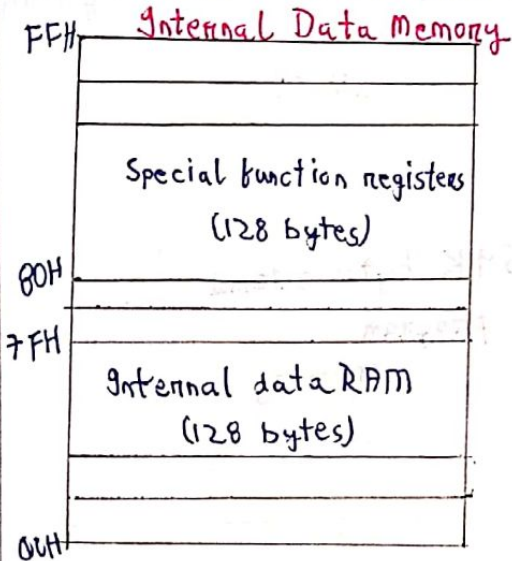 Internal Data Memory
FFH
Special function registers
(128 bytes)
80H
7FH
Internal data RAM
(128 bytes)
00H